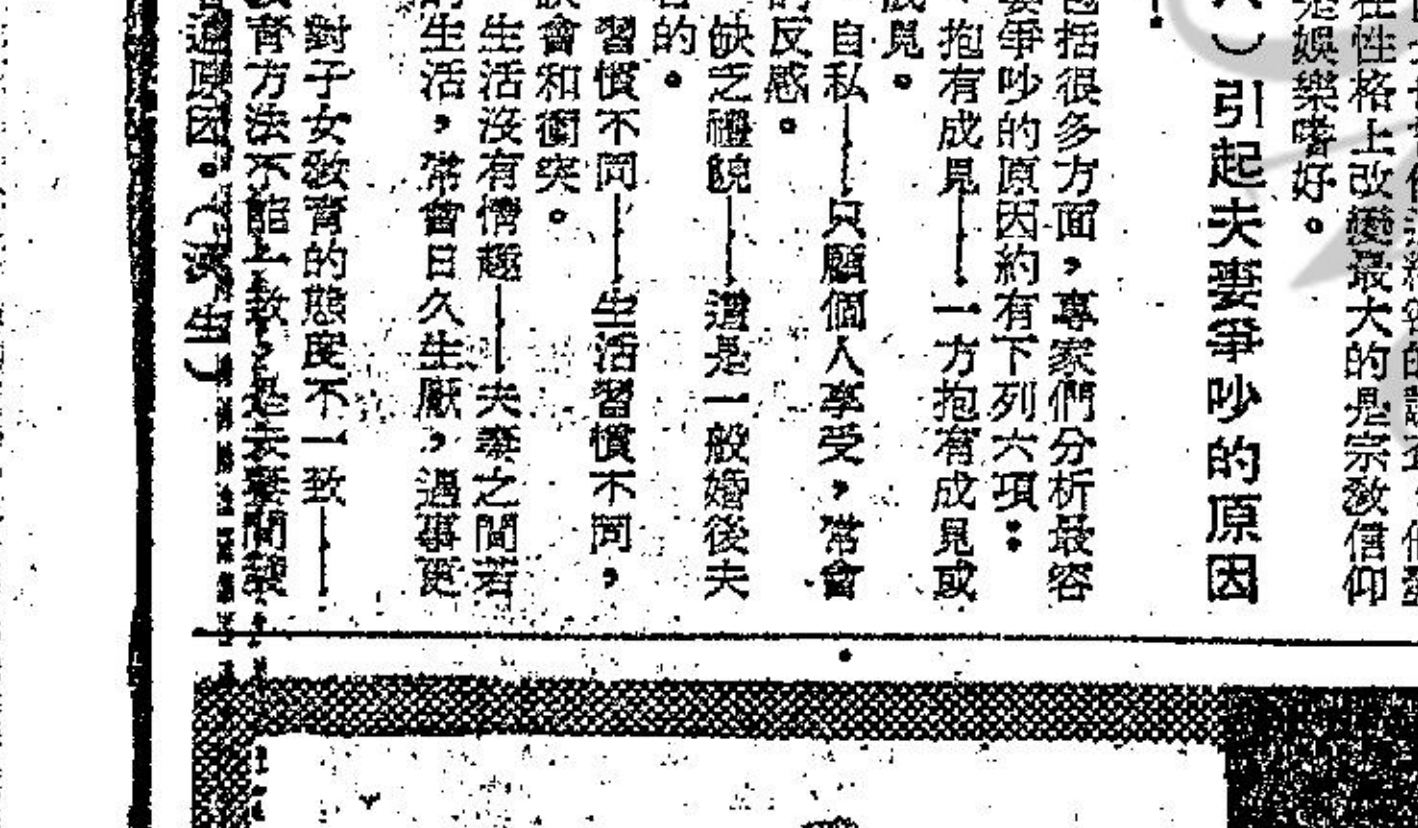 在性格上改變最大的是宗教信仰
是娛樂嗜好。
）引起夫妻爭吵的原因
包括很多方面，專家們分析最容
妻爭吵的原因約有下列六項：
、抱有成見——一方抱有成見或
成見。
自私——只顧個人享受，常會
的反感。
缺乏禮貌——這是一般婚後夫
的。
習慣不同——生活習慣不同，
誤會和衝突。
生活沒有情趣——夫妻之間若
的生活，常會日久生厭，遇事更
對子女教育的態度不一致——
教育方法不能一致，是夫妻間
原因。